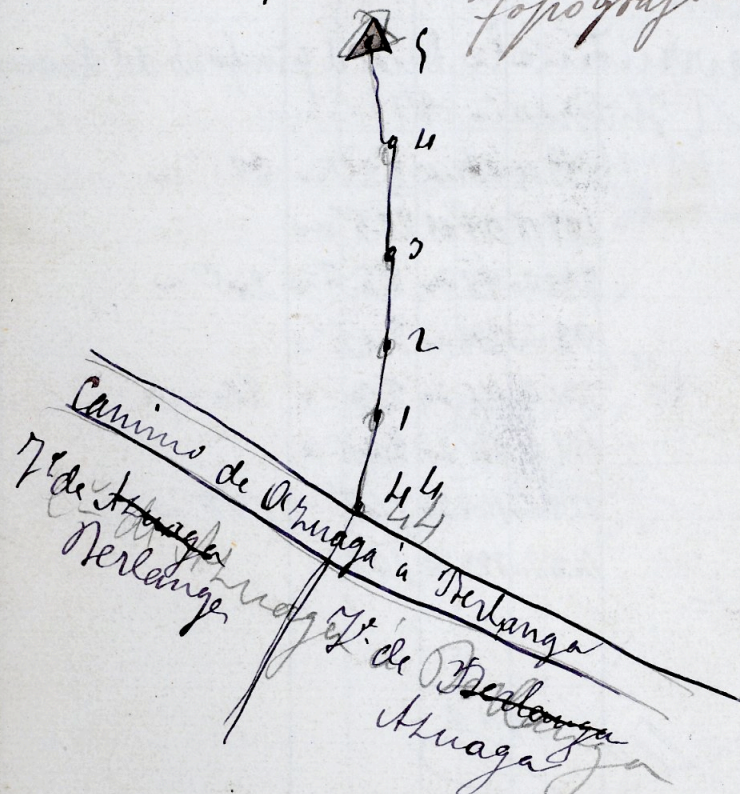 topograf
5
4
3
2
1
44
44
Camino de Azuaga á Berlanga
Tº de Azuaga
Berlanga
Tº de Berlanga
Azuaga